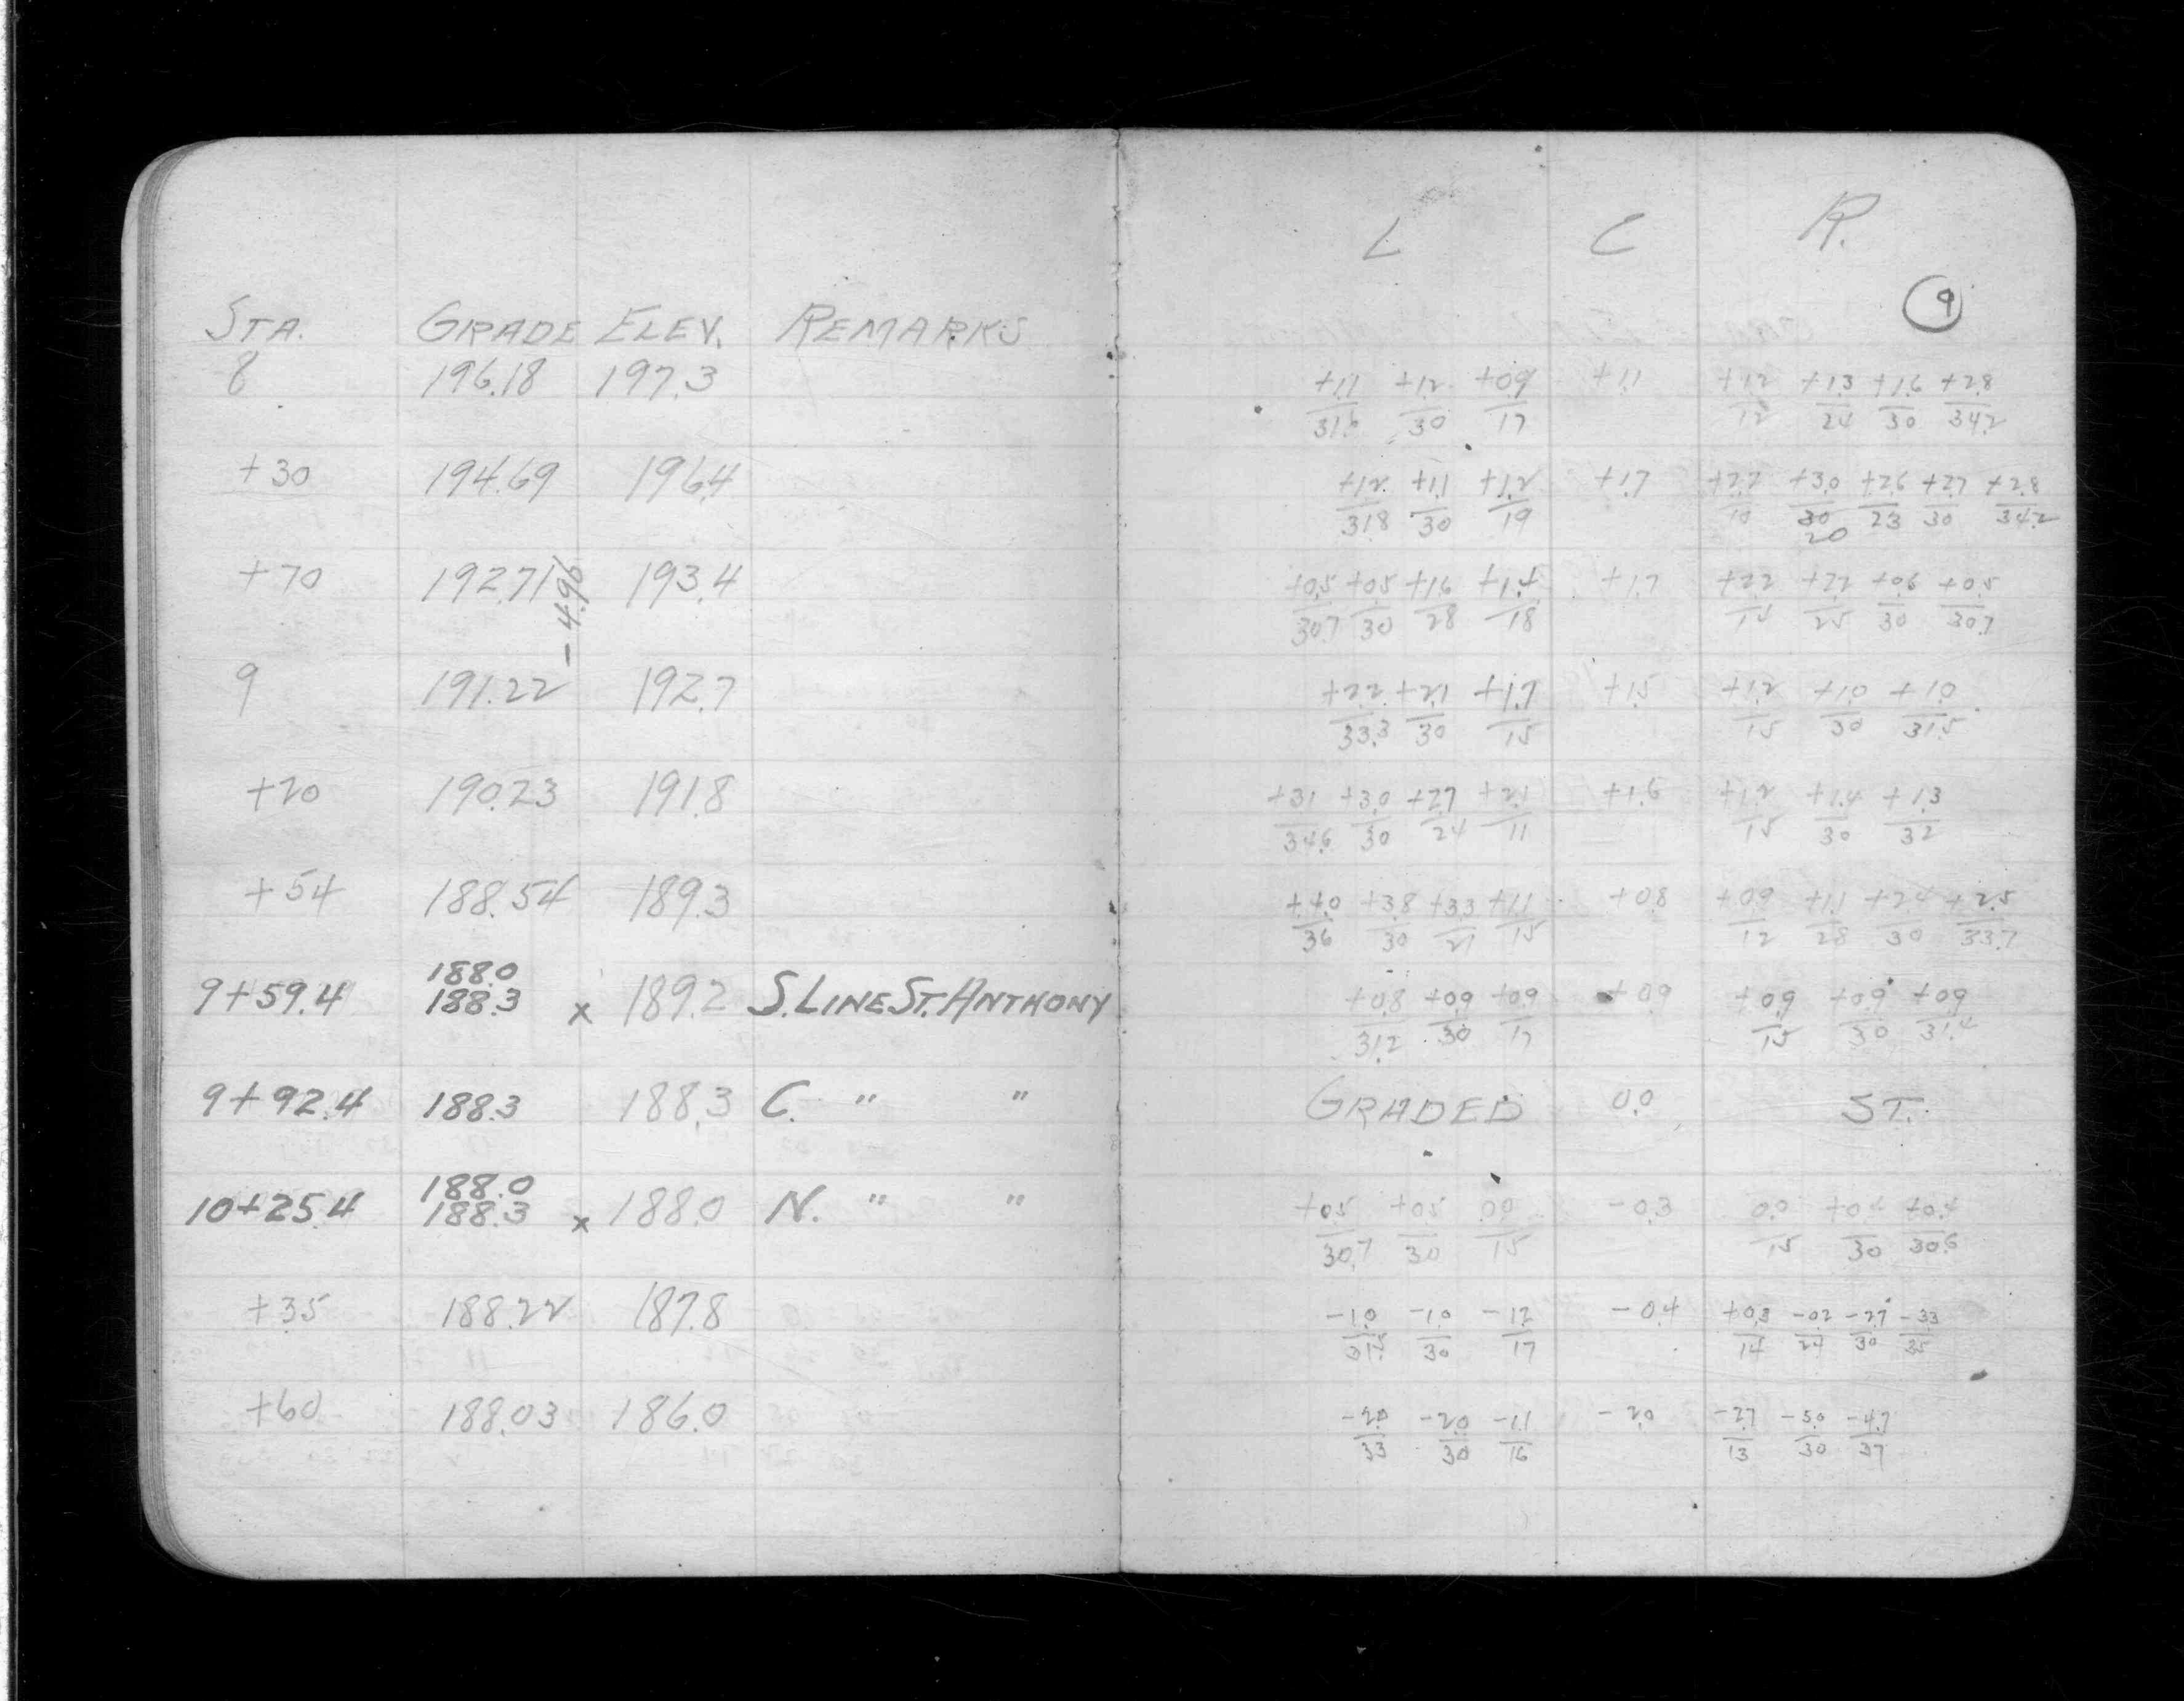 L C R.
9
STA. GRADE ELEV. REMARKS
8 196.18 197.3 +1.1 +1.2 +0.9 +1.1 +1.2 +1.3 +1.6 +2.8
31.6 30 17 12 24 30 34.2
+30 194.69 196.4 +1.2 +1.1 +1.2 +1.7 +2.2 +3.0 +2.6 +2.7 +2.8
31.8 30 19 10 30 23 30 34.2
20
+70 192.71 193.4 +0.5 +0.5 +1.6 +1.4 +1.7 +2.2 +2.2 +0.6 +0.5
30.7 30 28 18 15 25 30 30.7
-4.96
9 191.22 192.7 +2.2 +2.1 +1.7 +1.5 +1.2 +1.0 +1.0
33.3 30 15 15 30 31.5
+20 190.23 191.8 +3.1 +3.0 +2.7 +2.1 +1.6 +1.2 +1.4 +1.3
34.6 30 24 11 15 30 32
+54 188.54 189.3 +4.0 +3.8 +3.3 +1.1 +0.8 +0.9 +1.1 +2.4 +2.5
36 30 21 15 12 28 30 33.7
188.0
9+59.4 188.3 x 189.2 S. LINE ST. ANTHONY +0.8 +0.9 +0.9 +0.9 +0.9 +0.9 +0.9
31.2 30 17 15 30 31.4
9+92.4 188.3 188.3 C. " " GRADED 0.0 ST.
188.0
10+25.4 188.3 x 188.0 N. " " +0.5 +0.5 0.0 -0.3 0.0 +0.4 +0.4
30.7 30 15 15 30 30.6
+35 188.22 187.8 -1.0 -1.0 -1.2 -0.4 +0.3 -0.2 -2.7 -3.3
30 17 14 24 30 35
+60 188.03 186.0 -2.0 -2.0 -1.1 -2.0 -2.7 -5.0 -4.7
33 30 16 13 30 37